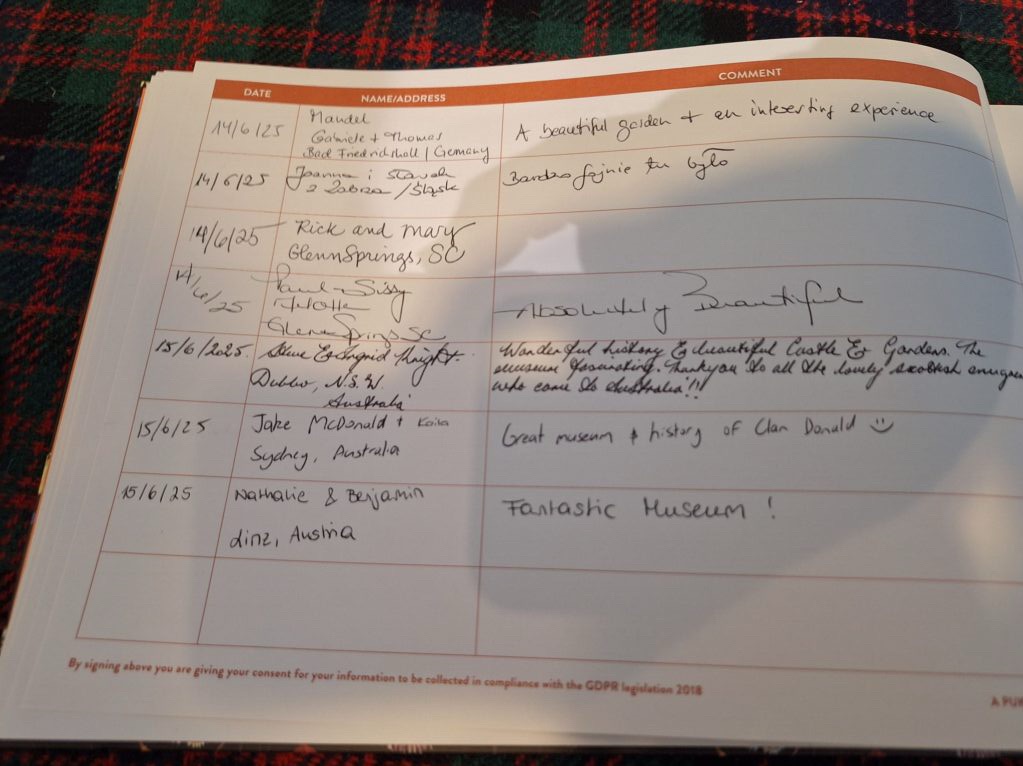 DATE NAME/ADDRESS COMMENT
14/6/25 Mandel
Gabriele + Thomas
Bad Friedrichshall / Gemany
A beautiful garden + an interesting experience
14/6/25 Joanna i Sławek
z Zabrza / Śląsk
Bardzo fajnie tu było
14/6/25 Rick and mary
GlennSprings, SC
14/6/25 Paul + Sissy
Glenn Springs SC
Absolutely Beautiful
15/6/2025. Steve & Ingrid Knight.
Dubbo, N.S.W.
Australia
Wonderful history & beautiful Castle & Gardens. The
museum fascinating. Thankyou to all the lovely scottish
who come to Australia!!!
15/6/25 Jake McDonald +
Sydney, Australia
Great museum & history of Clan Donald ☺
15/6/25 Nathalie & Benjamin
Linz, Austria
Fantastic Museum !
By signing above you are giving your consent for your information to be collected in compliance with the GDPR legislation 2018